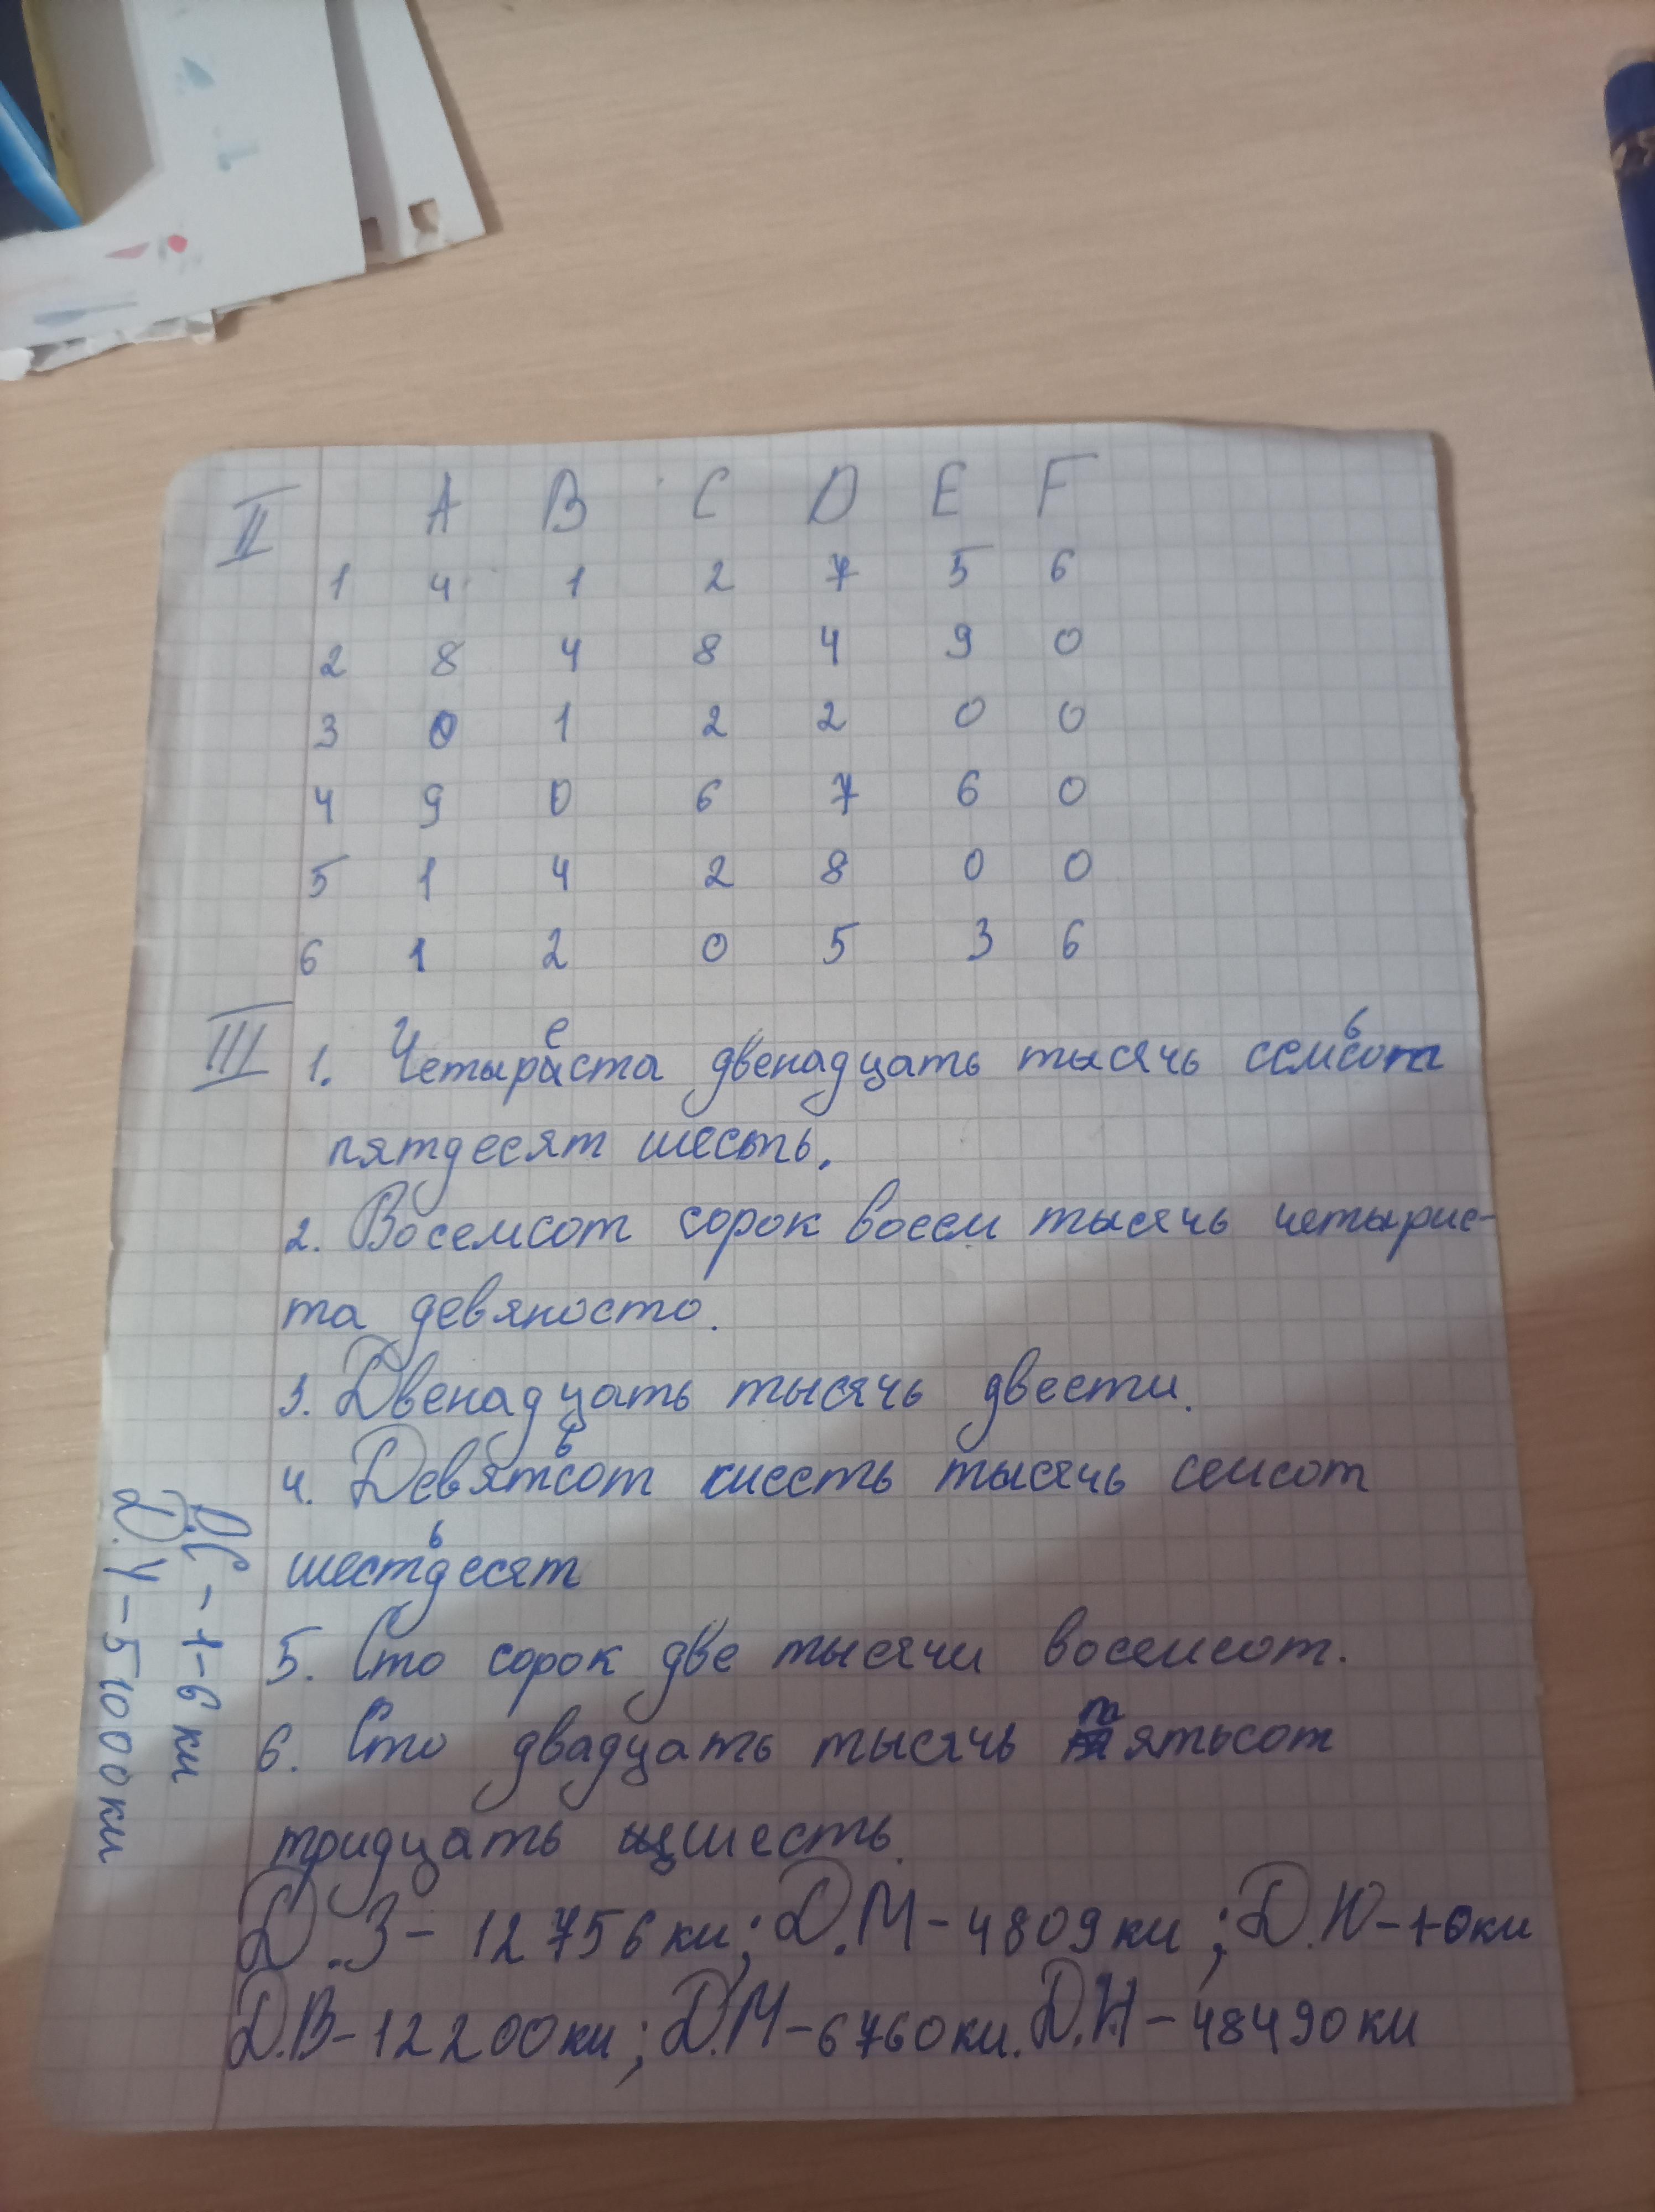 II A B C D E F
1 4 1 2 7 5 6
2 8 4 8 4 9 0
3 0 1 2 2 0 0
4 9 0 6 7 6 0
5 1 4 2 8 0 0
6 1 2 0 5 3 6
III 1. Четыреста двенадцать тысячь семьсот
пятдесят шесть.
2. Восемсот сорок восем тысячь четырис-
та девяносто.
3. Двенадцать тысячь двести.
4. Девятьсот шесть тысячь семсот
шестьдесят
5. Сто сорок две тысячи восемсот.
6. Сто двадцать тысячь пятьсот
тридцать шесть.
Д.З - 12 756 км; Д.М - 4809 км; Д.Ю - 10км
Д.В - 12 200 км; Д.М - 6760 км. Д.Н - 48490 км
Д.С - 1-6 км
Д.У - 51000 км